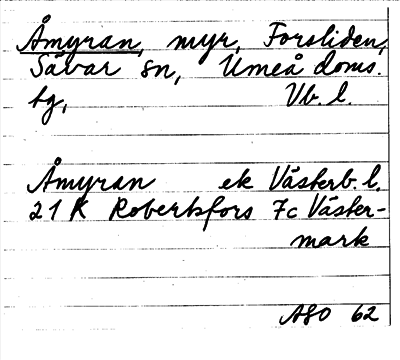 Åmyran, myr, Forsliden,
Sävar sn, Umeå doms.
tg, Vb. l.
Åmyran ek Västerb. l.
21 K Robertsfors 7c Väster-
mark
ASO 62